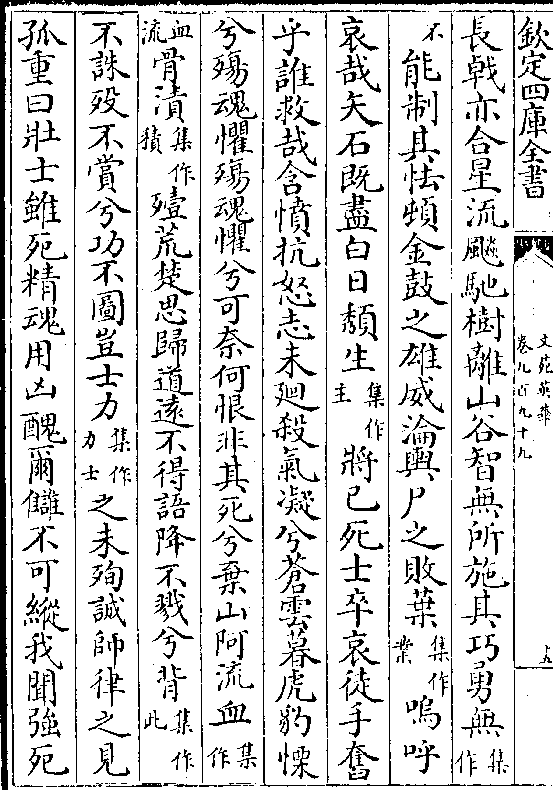 欽定四庫全書
文苑英華
卷九百九十九
五
長戟亦合星流飈馳樹離山谷智無所施其巧勇無集作
不能制其怯頓金鼓之雄威淪輿尸之敗葉集作業嗚呼
哀哉矢石既盡白日頽生集作主將已死士卒哀徒手奮
乎誰救哉含憤抗怒志未廻殺氣凝兮蒼雲暮虎豹慄
兮殤魂懼殤魂懼兮可奈何恨非其死兮棄山阿流血集作
血流骨漬集作積殪荒楚思歸道遠不得語降不戮兮背集作此
不誅歿不賞兮功不圖豈士力集作力士之未殉誠師律之見
孤重曰壯士雖死精魂用凶醜爾讎不可縱我聞強死